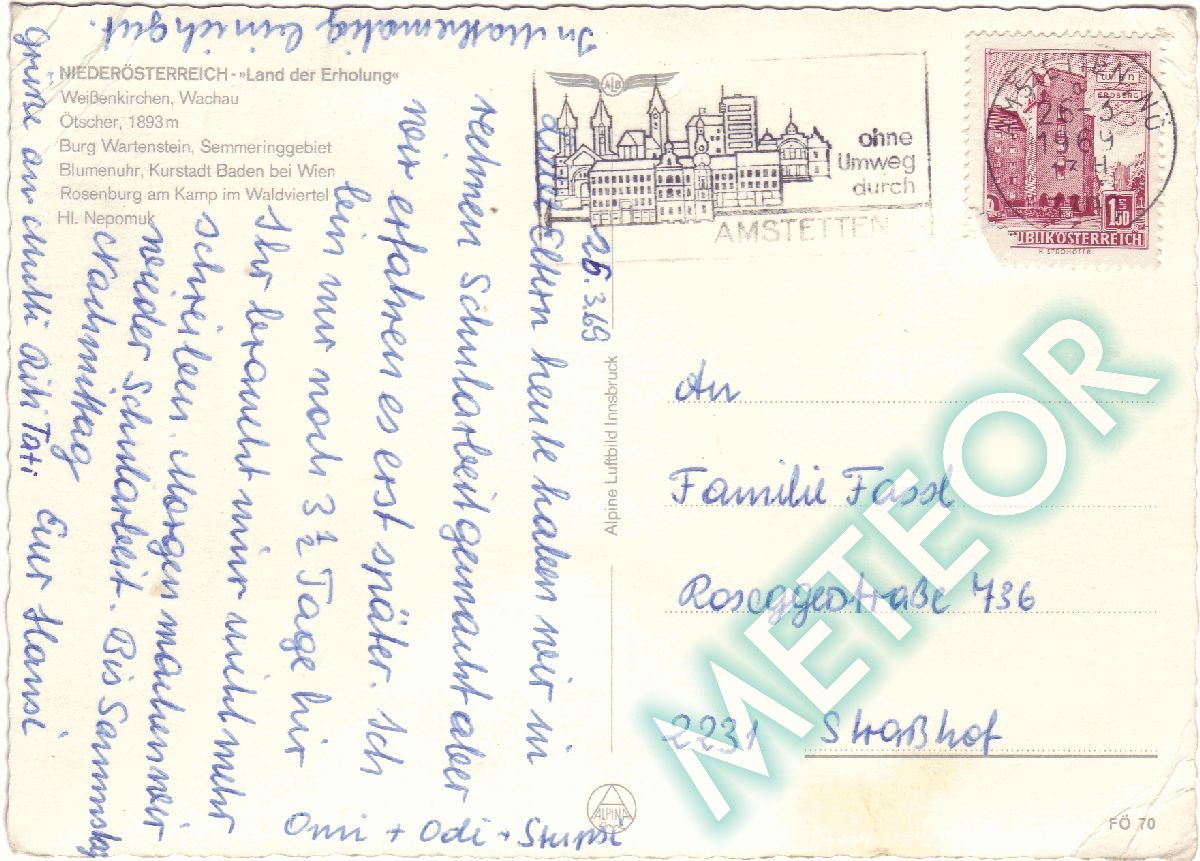 NIEDERÖSTERREICH - »Land der Erholung«
Weißenkirchen, Wachau
Ötscher, 1893 m
Burg Wartenstein, Semmeringgebiet
Blumenuhr, Kurstadt Baden bei Wien
Rosenburg am Kamp im Waldviertel
Hl. Nepomuk
26.3.69
Liebe Eltern heute haben wir in
rechnen Schularbeit gemacht aber
wir erfahren es erst später. Ich
bin nur noch 3 ½ Tage hir
Ihr braucht mir nicht mehr
schreiben. Morgen machen wir
wieder Schularbeit. Bis Sammstag
Nachmittag Eur Hansi
Grüße an Mutti Tati
In Mathematig bin ich gut
Omi + Odi + Stupsi
Alpine Luftbild Innsbruck
ALPINA
ALB
ohne
Umweg
durch
AMSTETTEN
AMSTETTEN NÖ
26-3
1969
WIEN
ERDBERG
1.50
REPUBLIK ÖSTERREICH
An
Familie Fassl
Roseggerstraße 736
2231 Straßhof
FÖ 70
METEOR